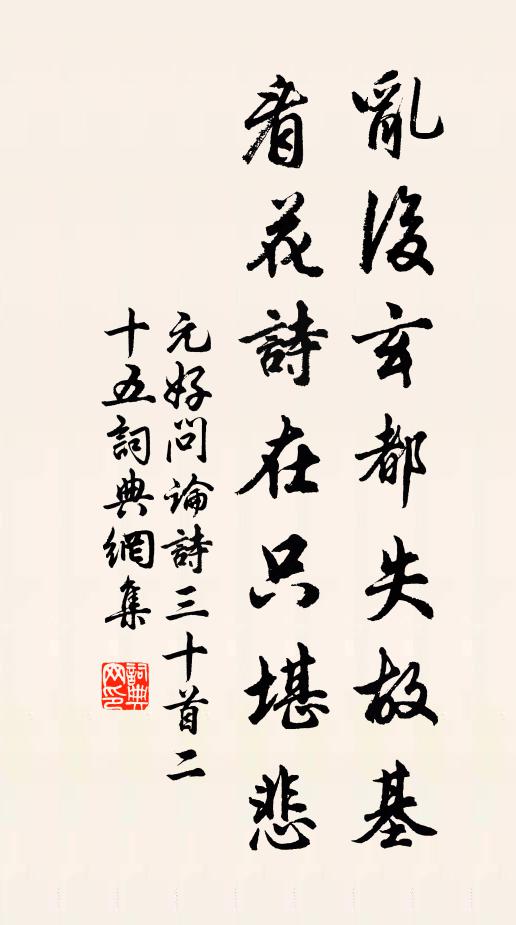 亂後玄都失故基
看花詩在只堪悲
元好問論詩三十首二
十五詞典網集
詞典
网印